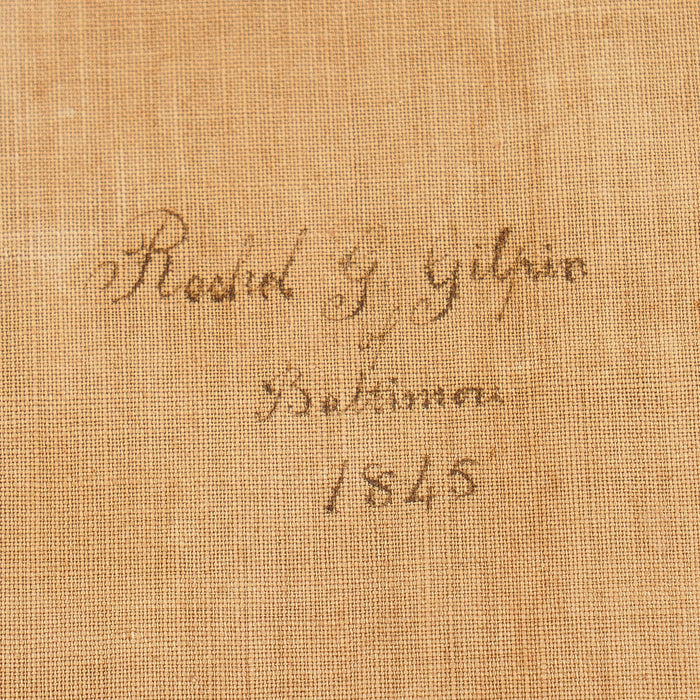 Rachel G. Gilpin
of
Baltimore
1845